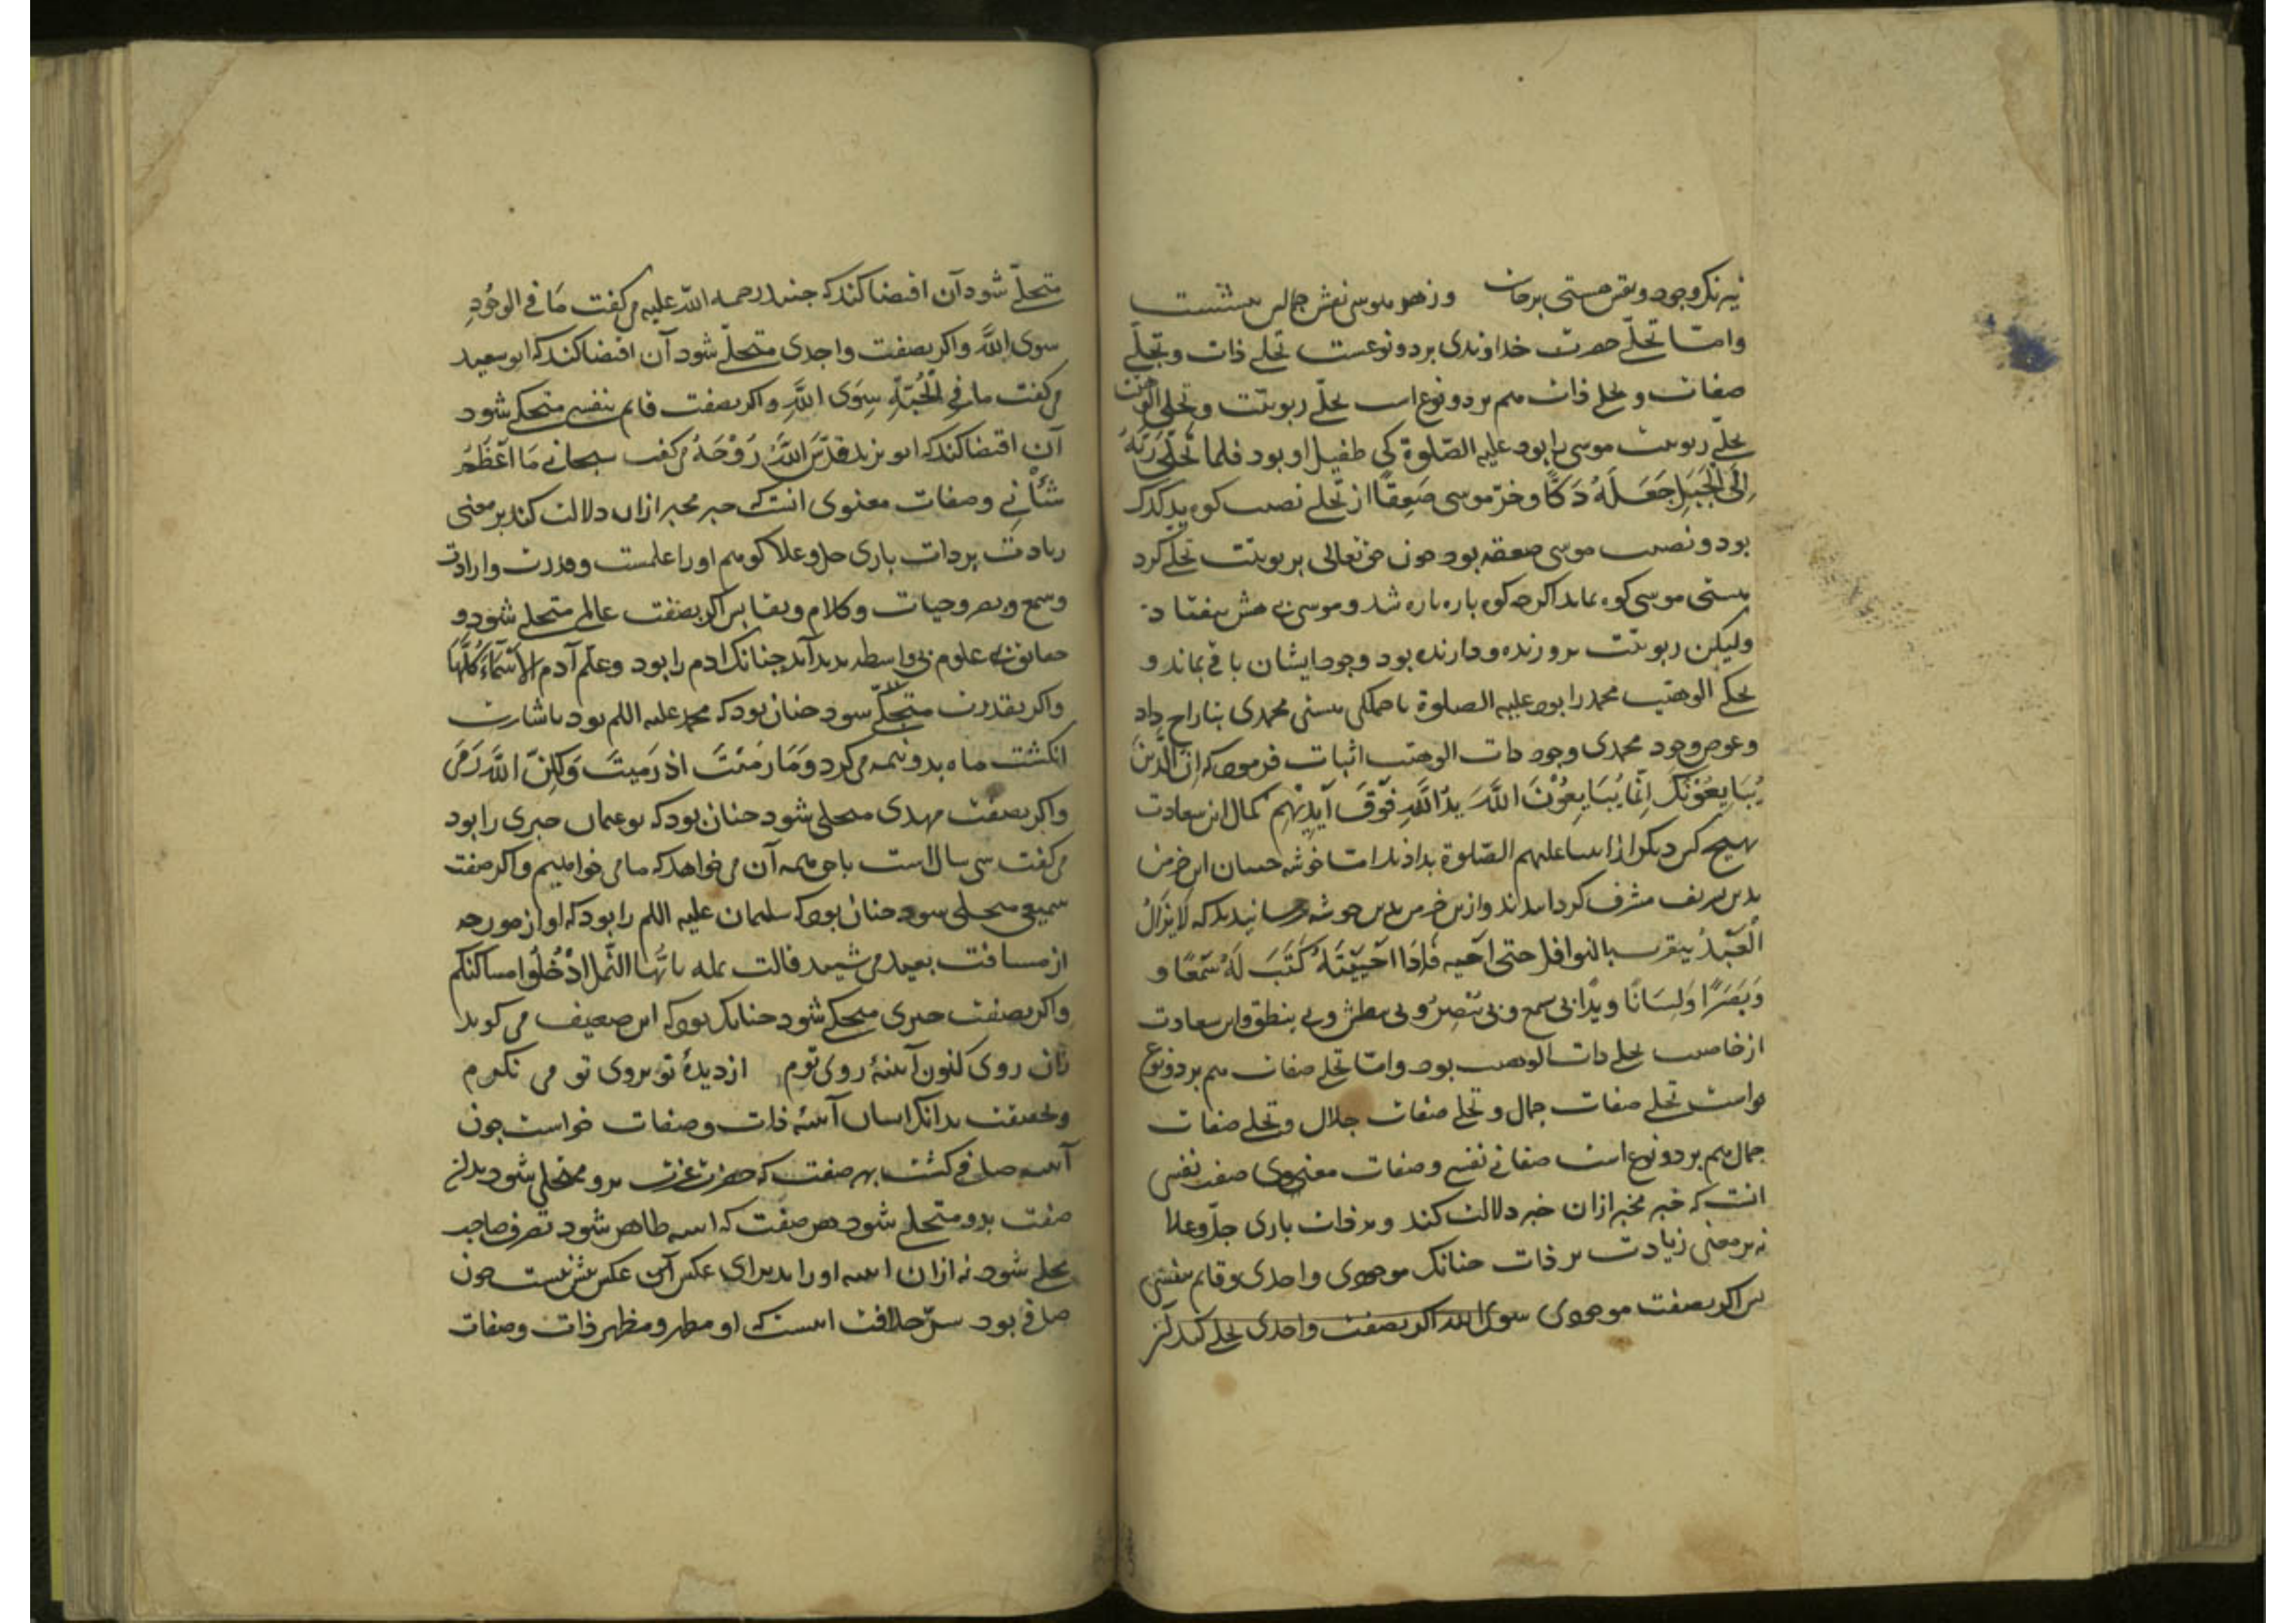 نیرنک وجود و نقش هستی برخاست و ز هو بلوسی نقش جمالش بنشست
واما تجلّی حضرت خداوندی بر دو نوعست تجلی ذات و تجلّی
صفات و تجلی ذات هم بر دو نوع است تجلّی ربوبیّت و تجلی الوهیت
تجلّی ربوبیت موسی را بود علیه الصّلوة کی طفیل او بود فلما تجلّی رَبّهُ
اِلَی الْجَبَلِ جَعَلَهُ دَكًّا وخرّ موسی صَعِقًا از تجلی نصیب کوه یدکدک
بود و نصیب موسی صعقه بود چون حق تعالی بربوبیّت تجلی کرد
هستی موسی کوه بماند اکرچه کوه پاره پاره شد و موسی بی هش بیفتاد
ولیکن ربوبیّت پروزنده و دارنده بود وجود ایشان باقی بماند و
تجلی الوهیت محمد را بود علیه الصلوة تا جملکی هستی محمدی بتاراج داد
و عوض وجود محمدی وجود ذات الوهیت اثبات فرمود که اِنّ الَّذینَ
یُبَایِعُوْنَكَ اِنَّمَا یُبَایِعُوْنَ اللَّهَ یدُ اللَّهِ فَوْقَ اَیْدِیْهِم کمال این سعادت
بهیچ کس دیکر از انبیا علیهم الصّلوة نداذند اما خوشه چینان این خرمن
بدین تشریف مشرف کردانیدند و ازین خرمن بدین خوشه رسانیدند که لایَزَالُ
الْعَبْدُ یتقرب بالنوافل حتی احبه فَاِذَا اَحْبَبْتَهُ کَتَبَ لَهُ سَمْعًا و
وَبَصَرًا وَلِسَانًا ویدًا بی سمع و بی یبْصِرُ و بی یبطش و بی ینطق و این سعادت
از خاصیت تجلی ذات الوهیت بود و امّا تجلی صفات هم بر دو نوع
نواست تجلی صفات جمال و تجلی صفات جلال و تجلی صفات
جمال هم بر دو نوع است صفاتی نفسی و صفات معنوی صفت نفسی
انست که خبر مخبر ازان خبر دلالت کند و بر ذات باری جلّ وعلا
نه بر معنی زیادت بر ذات چنانک موجودی و احدی و قایم بنفسی
پس اکر بصفت موجودی سوی الله اکر بصفت واحدی تجلی کند
متجلّی شود آن اقتضا کند که جنید رحمه اللّه علیه می کفت مَا فی الوجُودِ
سوی اللَّه و اکر بصفت واجدی متجلّی شود آن اقتضا کند که ابو سعید
می کفت ما فی الْجُبَّةِ سِوَی اللَّهِ و اکر بصفت قایم بنفسی متجلی شود
آن اقتضا کند که ابو یزید قَدَّسَ اللَّهُ رَوْحَهُ می کفت سبحانی مَا اَعْظَمُ
شَأْنِی و صفات معنوی انست که خبر مخبر ازان دلالت کند بر معنی
زیادت بر ذات باری جل و علا کوییم او را علمست و قدرت و ارادت
و سمع و بصر و حیات و کلام و بقا پس اکر بصفت عالمی متجلی شود و
حقایق علوم بی واسطه پدید آید چنانک ادم را بود وعلّم آدم الْاَسْمَآءَ كُلَّهَا
و اکر بقدرت متجلّی شود چنان بود که محمد علیه اللم بود باشارت
انکشت ماه بدو نیمه می کرد وَمَا رَمَیْتَ اِذ رَمیتَ وَلَكِنَّ اللَّهَ رَمَی
و اکر بصفت مهدی متجلی شود چنان بود که بو عثمان حیری را بود
می کفت سی سالاست با حق همه آن می خواهد که ما می خواهیم و اکر صفت
سمیعی متجلی شود چنان بود که سلیمان علیه اللم را بود که اواز مورچه
از مسافت بعید می شنید قالت نمله یا اَیّهَا النّمل ادْخُلُوا مساکنکم
و اکر بصفت حیری متجلی شود چنانک بود که این ضعیف می کوید
زان روی کنون آینهٔ روی توم از دیدهٔ تو بروی تو می نکرم
و بحقیقت بدانک انسان آینه ذات و صفات خواست چون
آینه صافی کشت بهر صفت که حضرت عزت برو متجلی شود بدان
صفت برو متجلی شود هر صفت که اینه ظاهر شود تصرف صاحب
تجلی شود نه ازان اینه او را پذیرای عکس آن عکس بیش نیست چون
صافی بود سرّ خلافت اینست که او مظهر و مظهر ذات و صفات